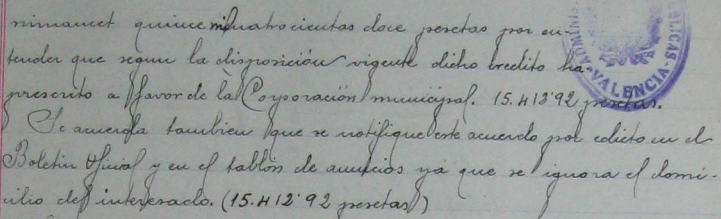 nimamet quince mil cuatrocientas doce pesetas por en-
tender que segun la disposición vigente dicho credito ha
prescrito a favor de la Corporación municipal. 15.412'92 pesetas.
Se acuerda tambien que se notifique este acuerdo por edicto en el
Boletin Oficial y en el tablón de anuncios ya que se ignora el domi-
cilio del interesado. (15.412'92 pesetas)
ADMINIS
BLICAS
VALENCIA